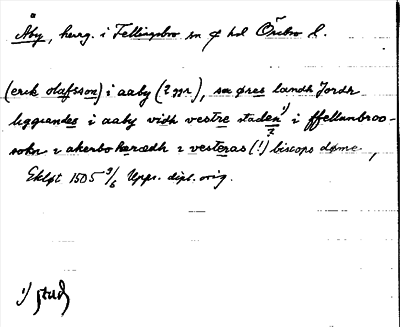 Åby, herrg. i Fellingsbro sn o hd Örebro l.
(erik olafsson) i aaby (2 ggr), sæ øres landh Jordh
liggiandes i aaby vidh vestre staden 1) i ffellunbroo-
?
sokn i akerbo hæradh i vesteras (!) biscops døme,
Ekløt 1505 9/6 Upps. dipl. orig.
1) stad